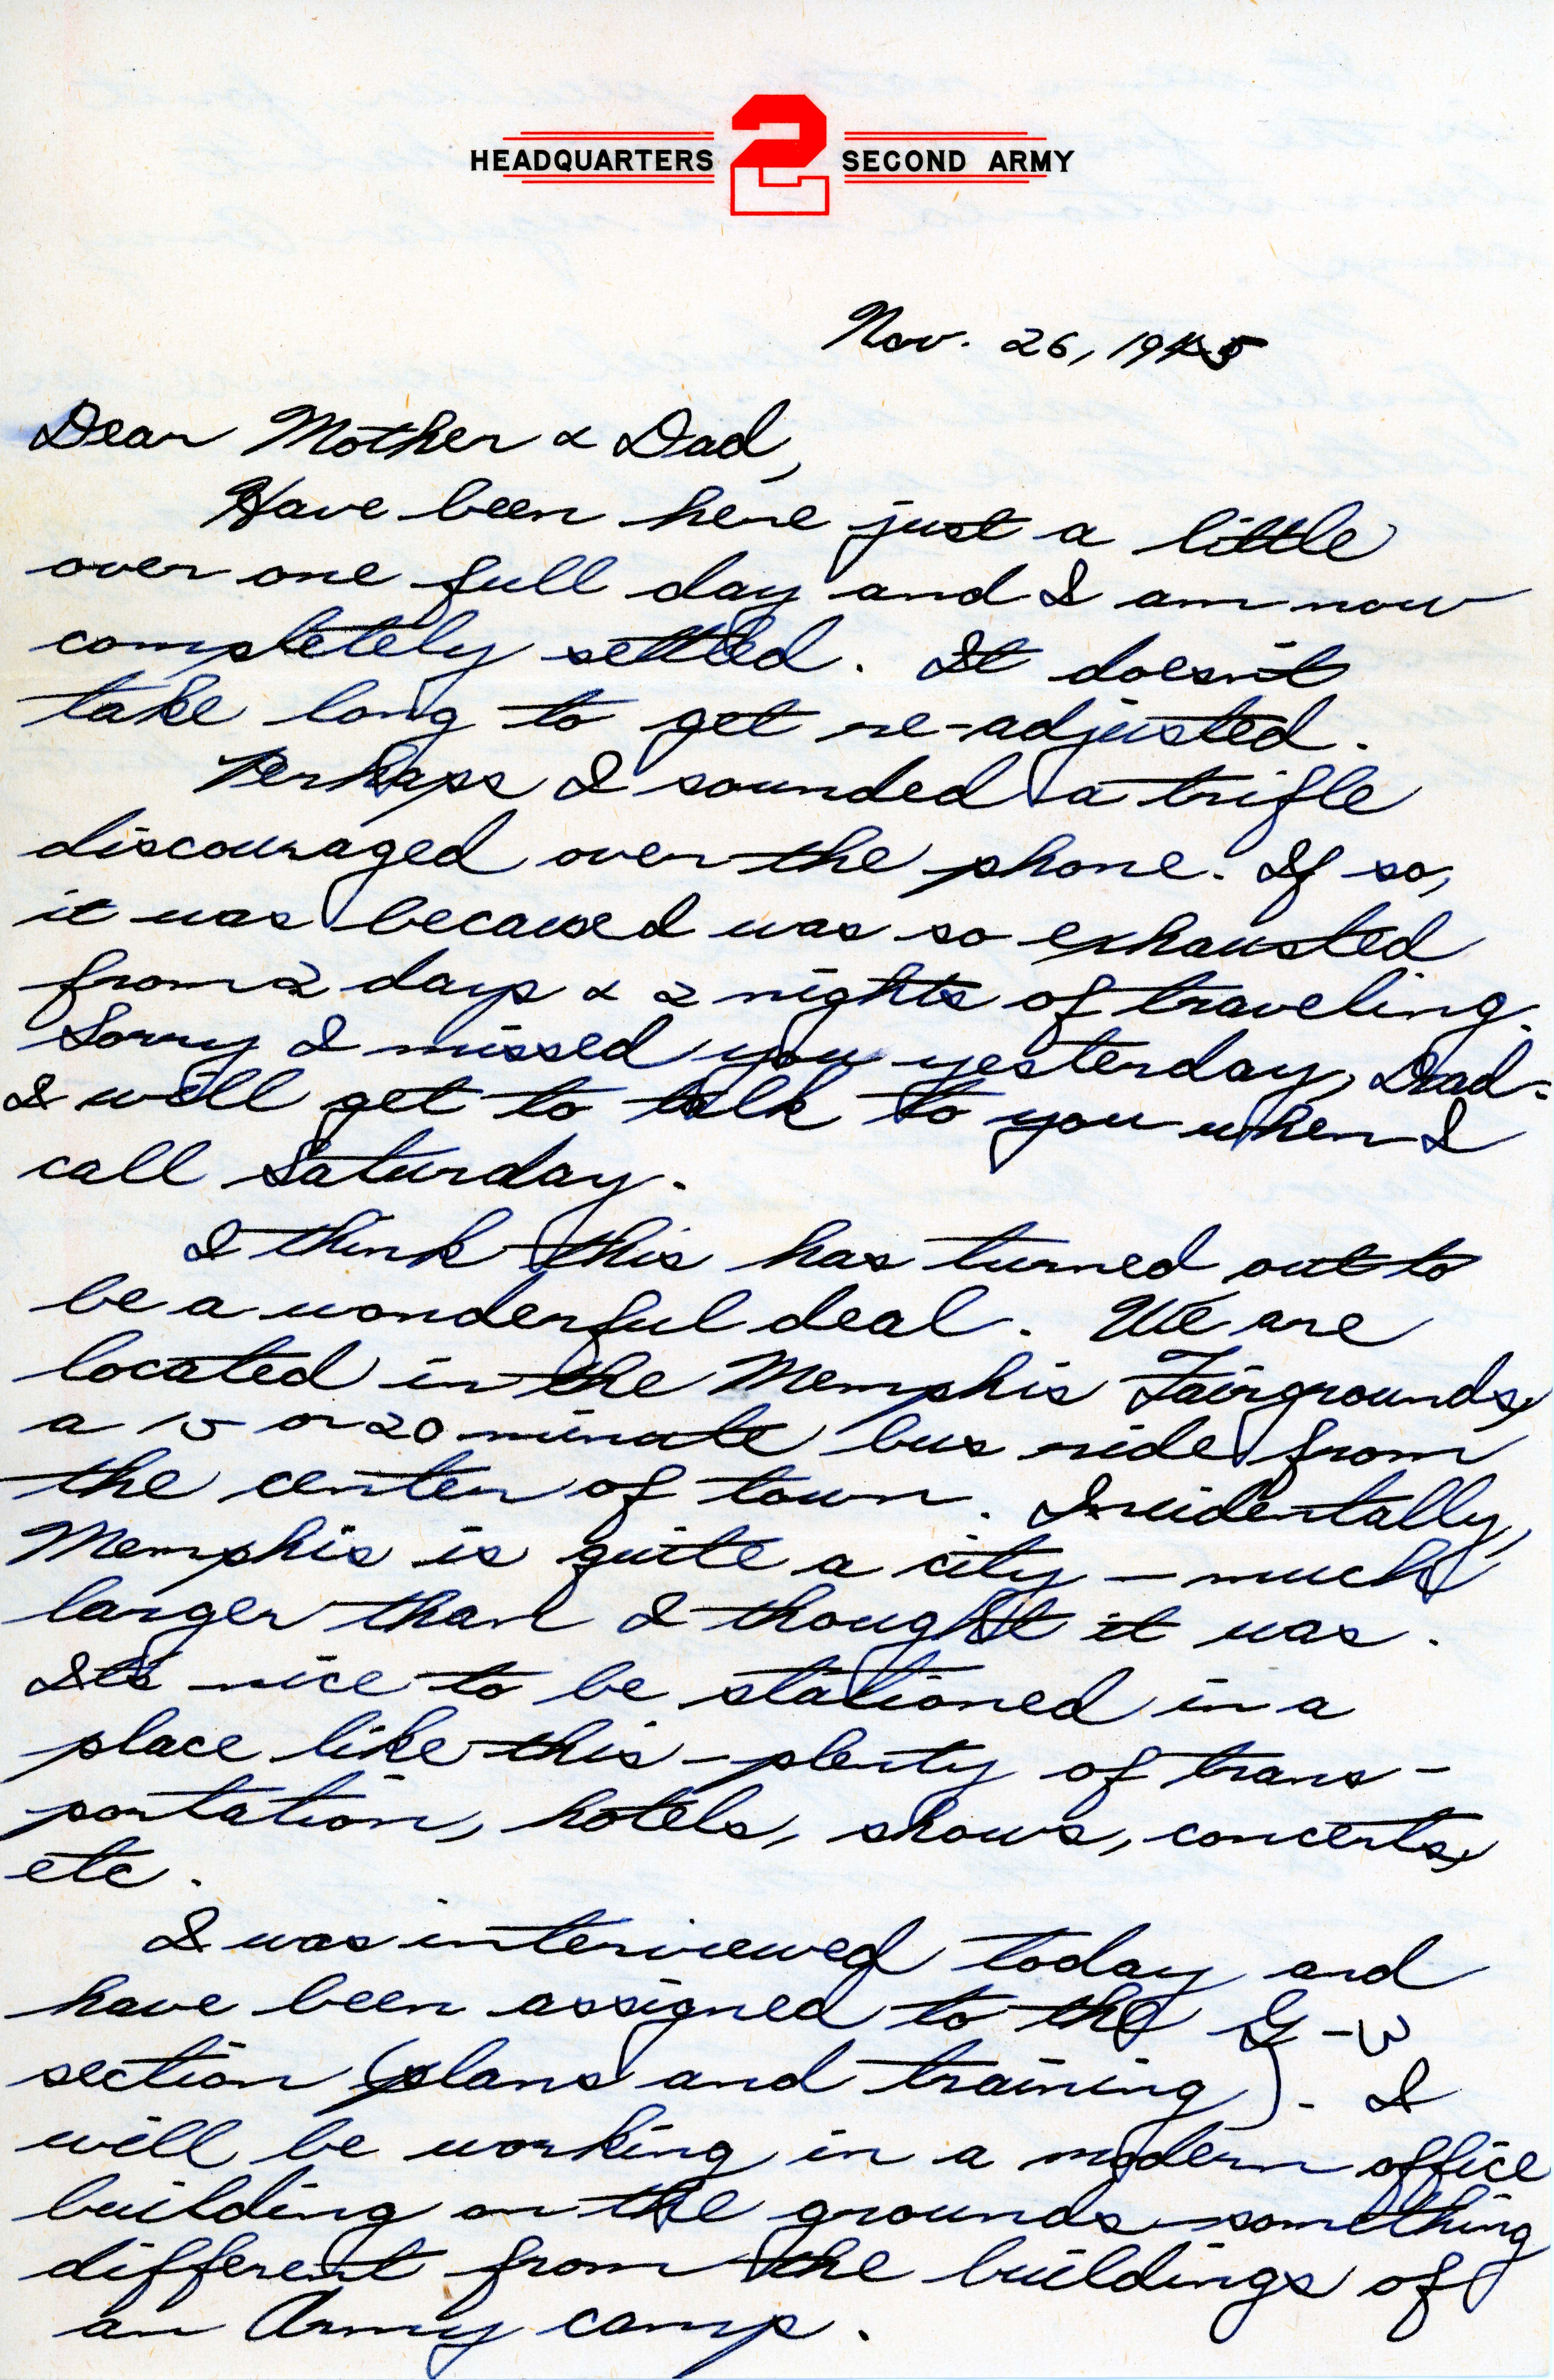 HEADQUARTERS 2 SECOND ARMY
Nov. 26, 1945
Dear Mother & Dad,
Have been here just a little
over one full day and I am now
completely settled. It doesn't
take long to get re-adjusted.
Perhaps I sounded a trifle
discouraged over the phone. If so,
it was because I was so exhausted
from 2 days & 2 nights of traveling.
Sorry I missed you yesterday, Dad-
I will get to talk to you when I
call Saturday.
I think this has turned out to
be a wonderful deal. We are
located in the Memphis Fairgrounds,
a 15 or 20 minute bus ride from
the center of town. Incidentally,
Memphis is quite a city - much
larger than I thought it was.
It's nice to be stationed in a
place like this - plenty of trans-
portation, hotels, shows, concerts,
etc.
I was interviewed today and
have been assigned to the G-3
section (plans and training). I
will be working in a modern office
building on the grounds - something
different from the buildings of
an Army camp.